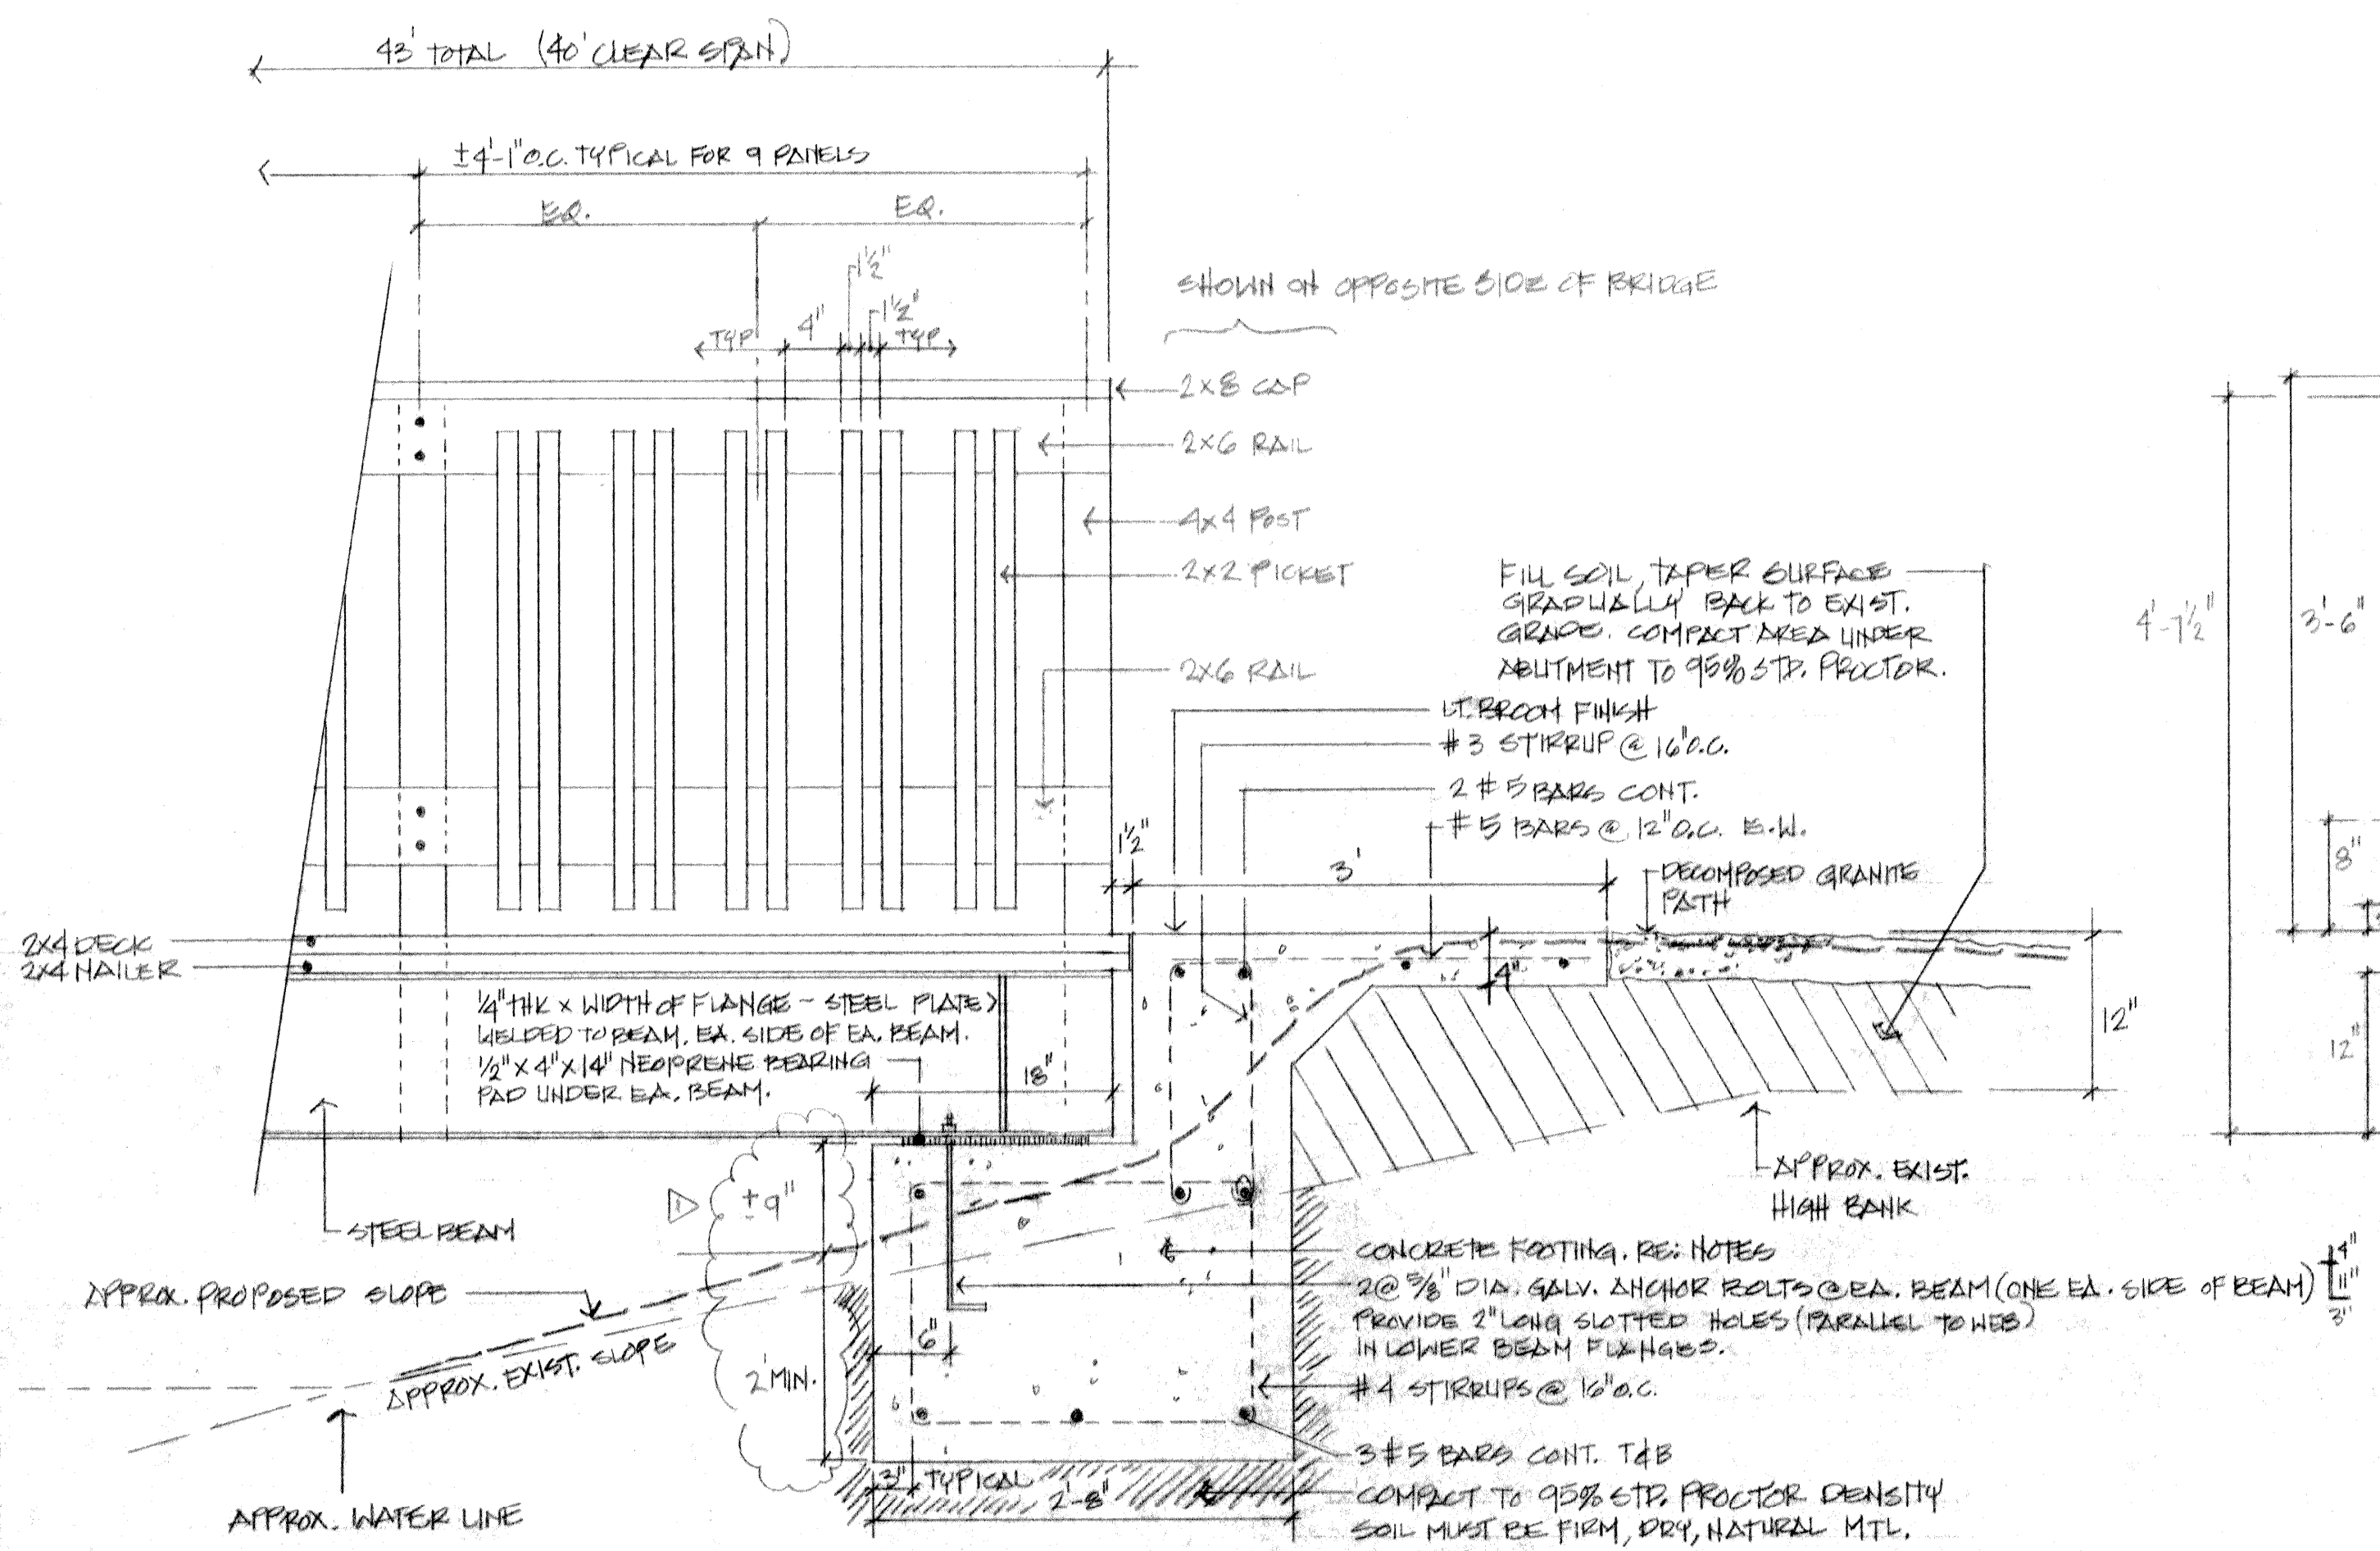 43' TOTAL (40' CLEAR SPAN)
±4'-1" O.C. TYPICAL FOR 9 PANELS
EQ.
EQ.
1½"
1½"
TYP
4"
TYP
SHOWN ON OPPOSITE SIDE OF BRIDGE
2×8 CAP
2×6 RAIL
4×4 POST
2×2 PICKET
2×6 RAIL
FILL SOIL, TAPER SURFACE
GRADUALLY BACK TO EXIST.
GRADE. COMPACT AREA UNDER
ABUTMENT TO 95% STD. PROCTOR.
4'-7½"
3'-6"
LT. BROOM FINISH
#3 STIRRUP @ 16" O.C.
2 #5 BARS CONT.
#5 BARS @ 12" O.C. E.W.
1½"
3'
DECOMPOSED GRANITE
PATH
8"
2X4 DECK
2X4 NAILER
4"
12"
12"
¼" THK × WIDTH OF FLANGE - STEEL PLATE
WELDED TO BEAM, EA. SIDE OF EA. BEAM.
½" × 4" × 14" NEOPRENE BEARING
PAD UNDER EA. BEAM.
18"
APPROX. EXIST.
HIGH BANK
1
±9"
STEEL BEAM
APPROX. PROPOSED SLOPE
APPROX. EXIST. SLOPE
CONCRETE FOOTING. RE: NOTES
2@ ⅝" DIA. GALV. ANCHOR BOLTS @ EA. BEAM (ONE EA. SIDE OF BEAM)
4"
11"
3"
PROVIDE 2" LONG SLOTTED HOLES (PARALLEL TO WEB)
IN LOWER BEAM FLANGES.
6"
2' MIN.
#4 STIRRUPS @ 16" O.C.
3 #5 BARS CONT. T&B
3" TYPICAL
2'-8"
COMPACT TO 95% STD. PROCTOR DENSITY
SOIL MUST BE FIRM, DRY, NATURAL MTL.
APPROX. WATER LINE